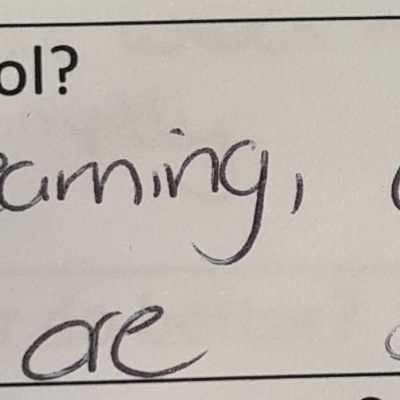 ol?
earning,
are